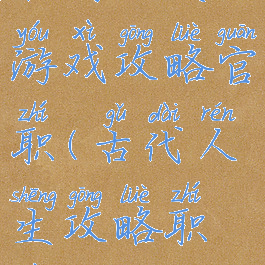 yóu xì gōng lüè guān
游戏攻略官
zhí gǔ dài rén
职(古代人
shēng gōng lüè zhí
生攻略职